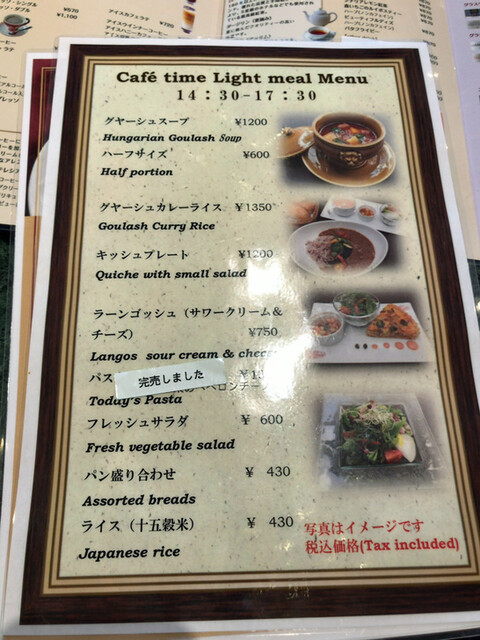 アイスカフェラテ
アイスウインナーコーヒー
¥670
¥720
¥1,100
Café time Light meal Menu
14：30-17：30
グヤーシュスープ ¥1200
Hungarian Goulash Soup
ハーフサイズ ¥600
Half portion
グヤーシュカレーライス ¥1350
Goulash Curry Rice
キッシュプレート ¥1200
Quiche with small salad
ラーンゴッシュ（サワークリーム＆
チーズ） ¥750
Langos sour cream &
パス
完売しました
Today's Pasta
フレッシュサラダ ¥ 600
Fresh vegetable salad
パン盛り合わせ ¥ 430
Assorted breads
ライス（十五穀米） ¥ 430
Japanese rice
写真はイメージです
税込価格(Tax included)